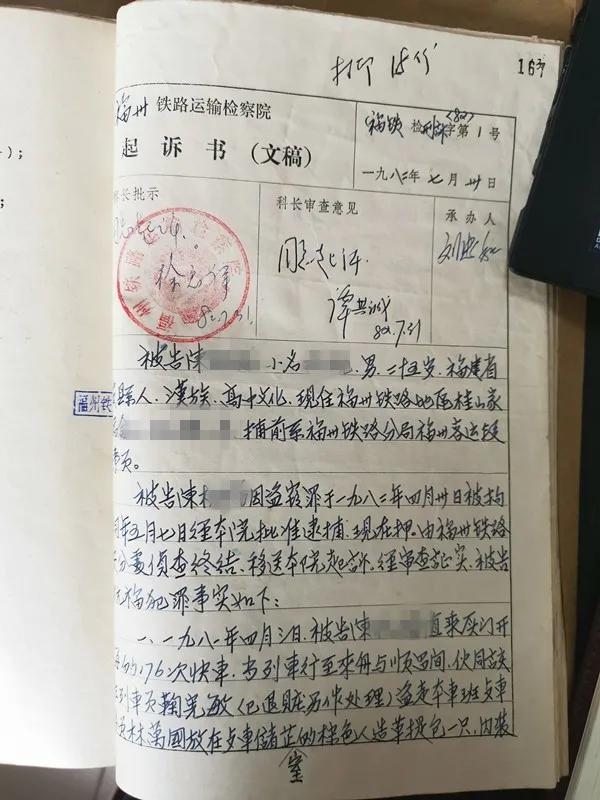 打印 15份
16
福州 铁路运输检察院
起诉书（文稿）
福铁 检刑诉字第1号
<82>
一九八二年七月卅日
科长批示
科长审查意见
承办人
同意起诉。
同意起诉
82.7.31
82.7.31
福州铁
被告陳 小名 男、二十五岁、福建省
縣人、漢族、高中文化、现住福州铁路地区桂山家
捕前系福州铁路分局福州客运段
乘员。
被告陳 因盗窃罪于一九八二年四月卅日被拘
同年五月七日经本院批准逮捕、现在押。由福州铁路
分處侦查终结、移送本院起訴、经审查证实、被告
犯罪事实如下：
一、一九八一年四月三日、被告陳 值乘厦门开
176次快車、当列車行至来舟与顺昌间、伙同該
列車员鞠 敏（已退賍另作处理）盗走本車班
员林萬國放在 車儲芷的棕色人造革提包一只、内装
室